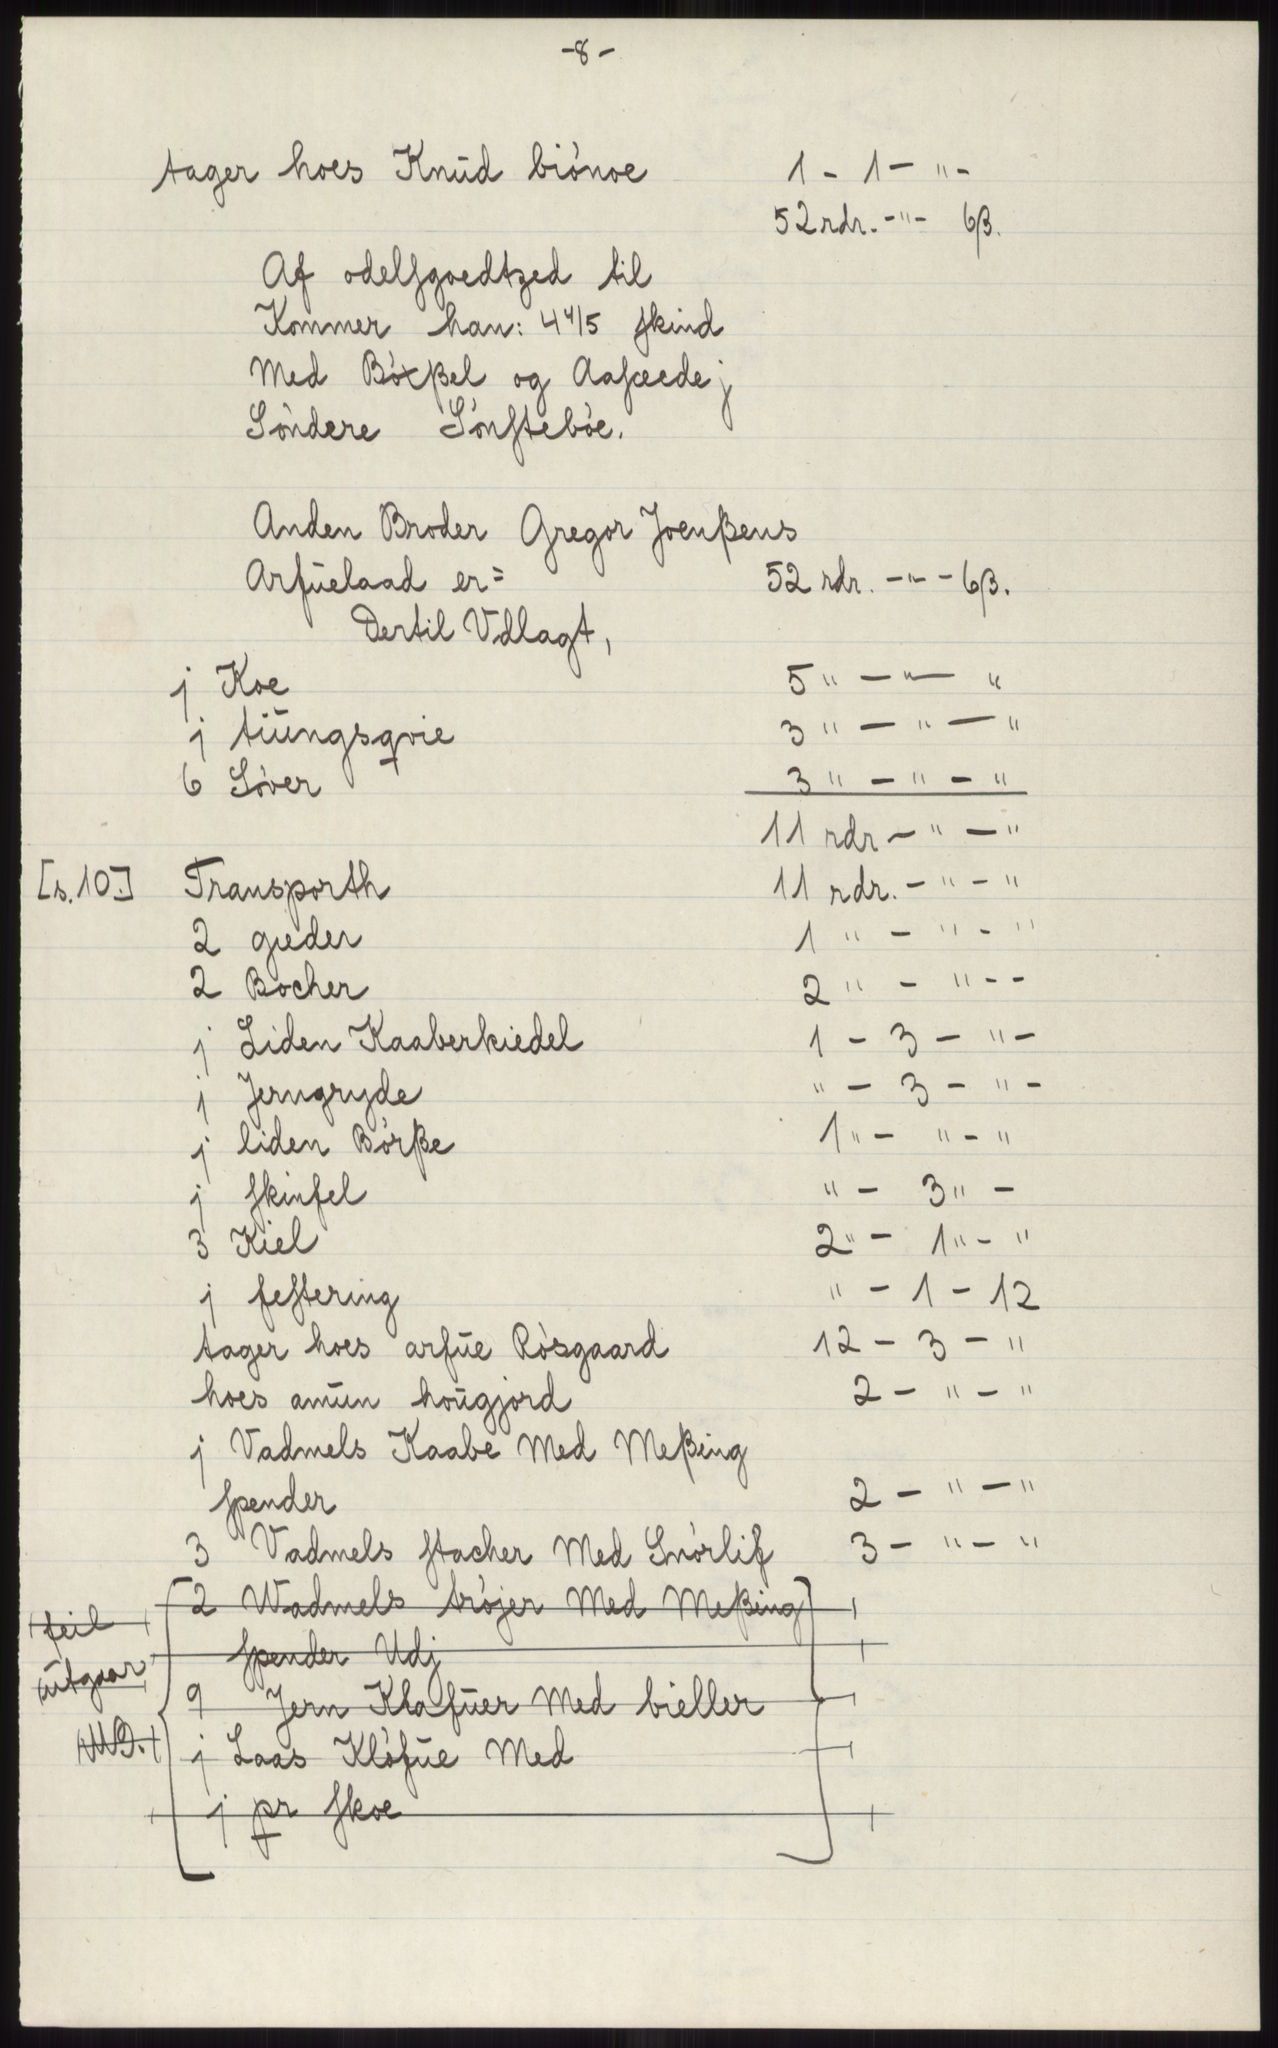 -8-
tager hoes Knūd biónoe 1 - 1 - " -
52 rdr. - " - 6β.
Af odelſgoedtzed til
Kommer han: 4 4/5 ſkind
Med Bóxβel og Aaſæede j
Sóndere Sónſtebóe.
Anden Broder Gregor Joenβens
Arfūelaad er= 52 rdr. - " - 6β.
Dertil Vdlagt,
j Koe 5 " - " - "
j tiūngsqvie 3 " - " - "
6 Sóver 3 " - " - "
11 rdr - " - "
[s.10.] Transporth 11 rdr. - " - "
2 gieder 1 " - " - "
2 Bocher 2 " - " - -
j Liden Kaaberkiedel 1 - 3 - " -
j Jerngryde " - 3 - " -
j liden Bórβe 1 " - " - "
j ſkinfel " - 3 " -
3 Kiel 2 " - 1 " - "
j feſtering " - 1 - 12
tager hoes arfūe Rósgaard 12 - 3 - "
hoes amūn hoūgjord 2 - " - "
j Vadmels Kaabe Med Meβing
ſpender 2 - " - "
3 Vadmels ſtacher Med Snórlif 3 - " - "
2 Wadmels trójer Med Meβing
feil
ſpender Udj
utgaar
9 Jern Klafūer Med bieller
j Laas Klófūe Med
j pr ſkoe